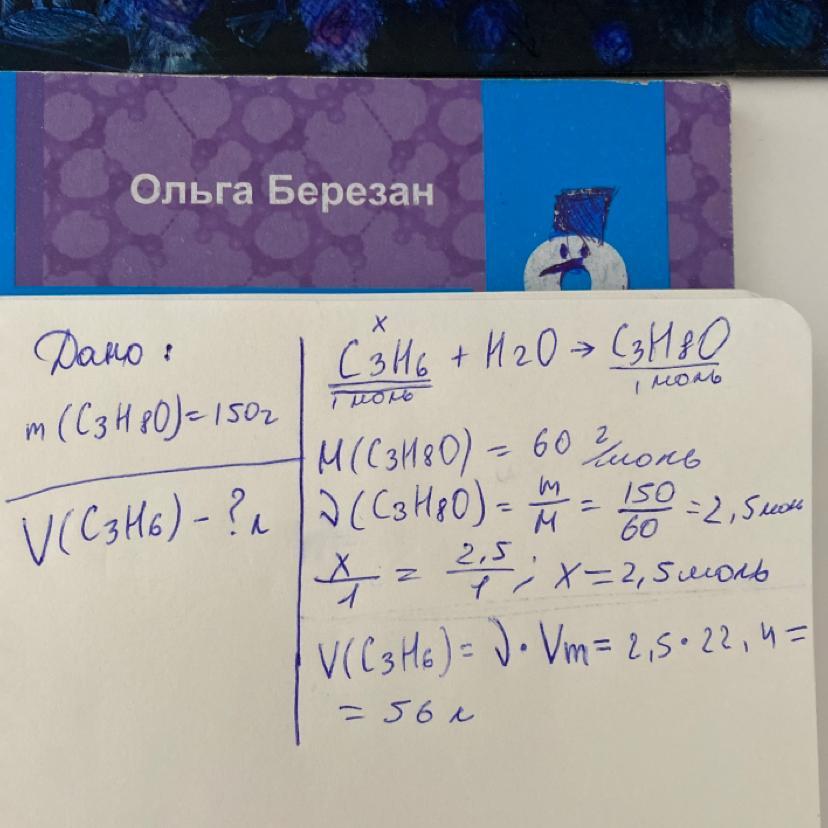 Ольга Березан
Дано:
m(C3H8O)=150г
V(C3H6) - ? л
x
C3H6 + H2O → C3H8O
1 моль 1 моль
M(C3H8O) = 60 г/моль
ν(C3H8O) = m/M = 150/60 = 2,5 моль
x/1 = 2,5/1; x = 2,5 моль
V(C3H6) = ν · Vm = 2,5 · 22,4 =
= 56 л